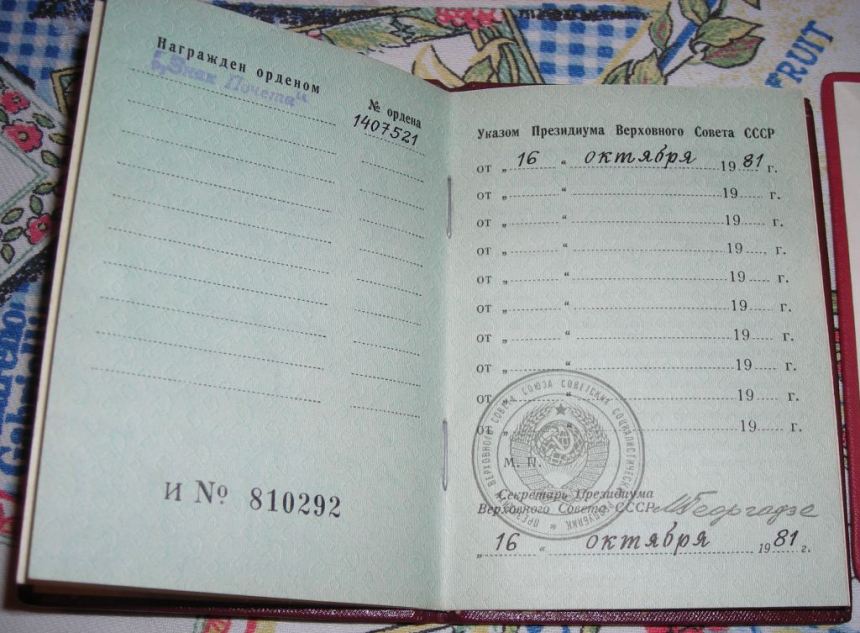 Награжден орденом
„Знак Почета“
№ ордена
1407521
И № 810292
Указом Президиума Верховного Совета СССР
от „ 16 “ октября 19 81 г.
от „ “ 19 г.
от „ “ 19 г.
от „ “ 19 г.
от „ “ 19 г.
от „ “ 19 г.
от „ “ 19 г.
от „ “ 19 г.
от „ “ 19 г.
от „ “ 19 г.
М. П.
Секретарь Президиума
Верховного Совета СССР МГеоргадзе
„ 16 “ октября 19 81 г.
ВЕРХОВНОГО СОВЕТА СОЮЗА СОВЕТСКИХ СОЦИАЛИСТИЧЕСКИХ
FRUIT